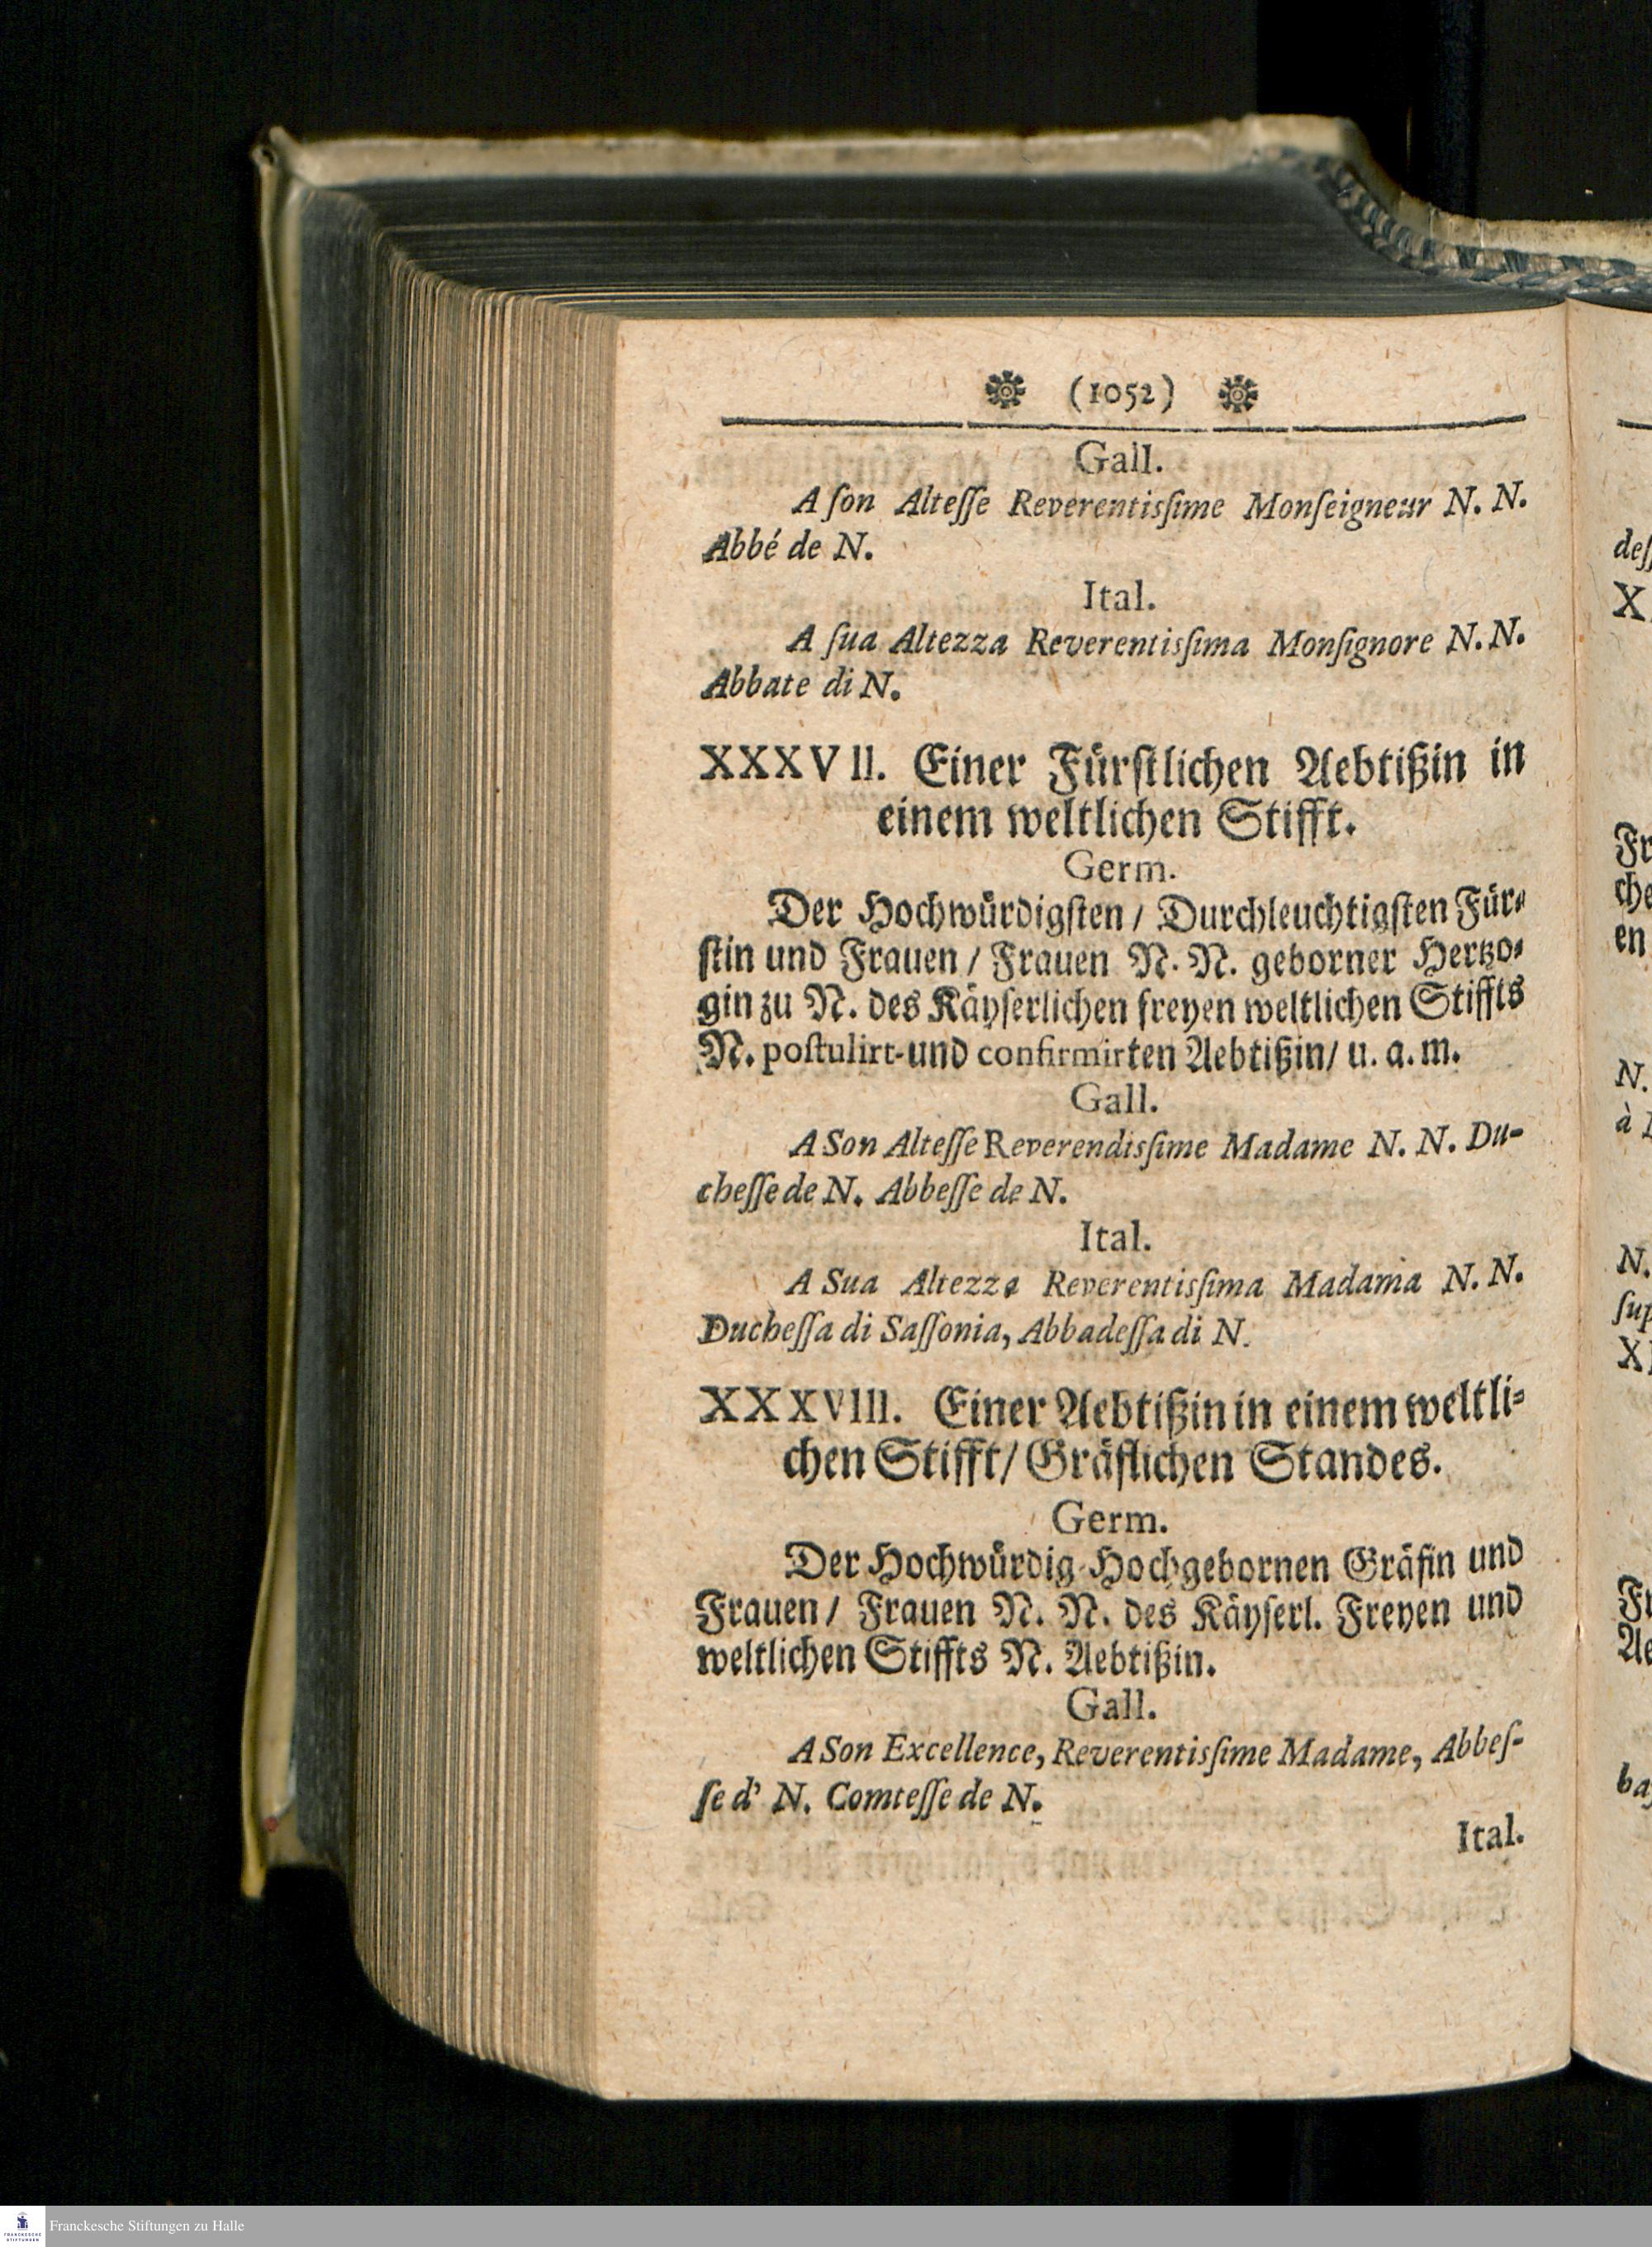 (1052)
Gall.
A ſon Alteſſe Reverentisſime Monſeigneur N. N.
Abbé de N.
Ital.
A ſua Altezza Reverentisſima Monſignore N. N.
Abbate di N.
XXXVII. Einer Fürſtlichen Aebtißin in
einem weltlichen Stifft.
Germ.
Der Hochwürdigſten / Durchleuchtigſten Für-
ſtin und Frauen / Frauen N. N. geborner Hertzo-
gin zu N. des Käyſerlichen freyen weltlichen Stiffts
N. poſtulirt-und confirmirten Aebtißin / u. a. m.
Gall.
A Son Alteſſe Reverendisſime Madame N. N. Du-
cheſſe de N. Abbeſſe de N.
Ital.
A Sua Altezza Reverentisſima Madama N. N.
Ducheſſa di Saſſonia, Abbadeſſa di N.
XXXVIII. Einer Aebtißin in einem weltli-
chen Stifft / Gräflichen Standes.
Germ.
Der Hochwürdig-Hochgebornen Gräfin und
Frauen / Frauen N. N. des Käyſerl. Freyen und
weltlichen Stiffts N. Aebtißin.
Gall.
A Son Excellence, Reverentisſime Madame, Abbeſ-
ſe d' N. Comteſſe de N.
Ital.
deſ
X
Fr
che
en
N.
à
N.
ſup
Fr
Ae
Franckesche Stiftungen zu Halle